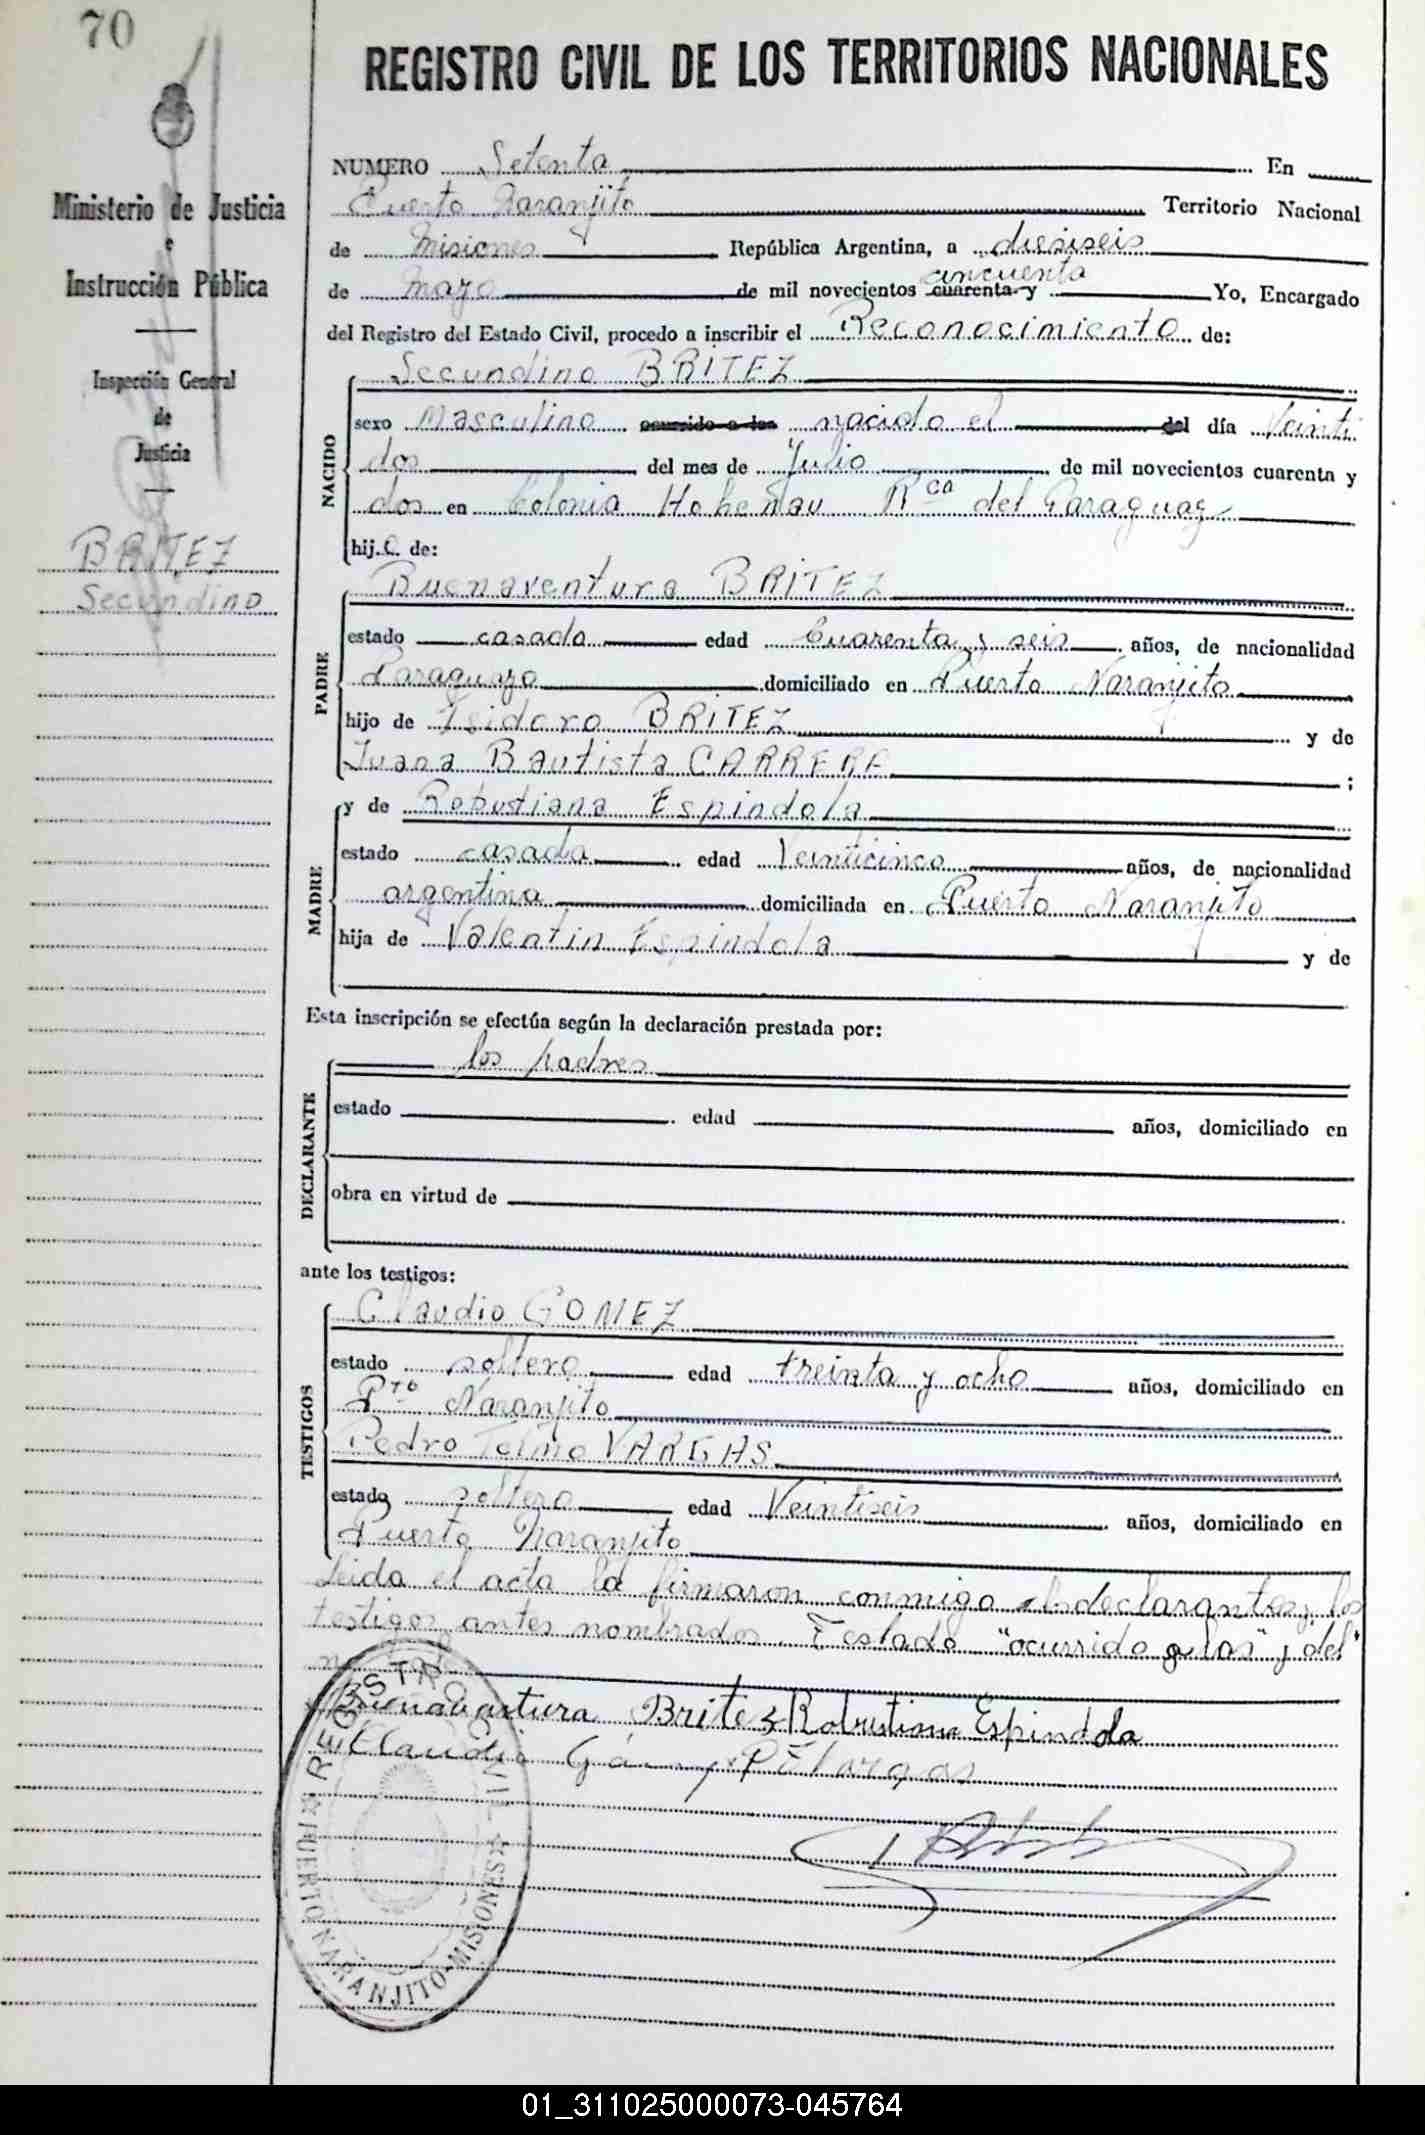 70
REGISTRO CIVIL DE LOS TERRITORIOS NACIONALES
Ministerio de Justicia
e
Instrucción Pública
Inspección General
de
Justicia
BRITEZ
Secundino
NUMERO Setenta En
Puerto Naranjito Territorio Nacional
de Misiones República Argentina, a diesiseis
cincuenta
de Mayo de mil novecientos cuarenta y Yo, Encargado
del Registro del Estado Civil, procedo a inscribir el Reconocimiento de:
Secundino BRITEZ
NACIDO
sexo Masculino ocurrido a las nacido el del día Veinti
dos del mes de Julio de mil novecientos cuarenta y
dos en Colonia Hohenau Rca del Paraguay
hij. de:
PADRE
Buenaventura BRITEZ
estado casado edad Cuarenta y seis años, de nacionalidad
Paraguayo domiciliado en Puerto Naranjito
hijo de Isidoro BRITEZ y de
Juana Bautista CARRERA ;
MADRE
y de Robustiana Espindola
estado casada edad Veinticinco años, de nacionalidad
argentina domiciliada en Puerto Naranjito
hija de Valentin Espindola y de
Esta inscripción se efectúa según la declaración prestada por:
los padres
DECLARANTE
estado edad años, domiciliado en
obra en virtud de
ante los testigos:
TESTIGOS
Claudio GOMEZ
estado soltero edad treinta y ocho años, domiciliado en
Pto Naranjito
Pedro Telmo VARGAS
estado soltero edad Veintiseis años, domiciliado en
Puerto Naranjito
Leida el acta la firmaron conmigo los declarantes y los
testigos antes nombrados. Testado "ocurrido a las" y "del"
Buenabentura Britez Robustiana Espindola
Claudio P T Vargas
REGISTRO CIVIL
PUERTO NARANJITO-MISIONES
01_311025000073-045764